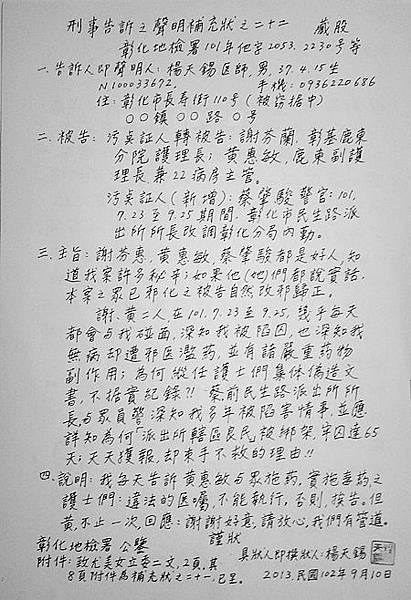 刑事告訴之聲明補充狀之二十二 藏股
彰化地檢署101年他字2053.2230號等
一.告訴人即聲明人:楊天錫医師,男,37.4.15生
N100033672. 手機:0936220686
住:彰化市長寿街110号(被窃据中)
〇〇鎮〇〇路〇号
二.被告:污臭証人轉被告:謝芬蘭.彰基鹿東
分院護理長;黃惠敏,鹿東副護
理長,兼22病房主管。
污臭証人(新增):蔡肇駿警官:101.
7.23至9.25期間,彰化市民生路派
出所所長改調彰化分局內勤。
三.主旨:謝芬惠,黃惠敏,蔡肇駿都是好人,知
道我案許多秘辛;如果他(她)們都說實話.
本案之眾已邪化之被告自然改邪歸正。
謝.黃二人在101.7.23至9.25,幾乎每天
都會与我碰面,深知我被陷囚,也深知我
無病却遭邪医濫药,並有諸嚴重药物
副作用;為何縱任護士們集体偽造文
書,不据實紀錄!!蔡前民生路派出所所
長,与眾員警深知我多年被陷害情事,並應
詳知為何「派出所轄區良民」被綁架,牢囚達65
天;天天獲報,却束手不救的理由!!
四.說明:我每天告訴黃惠敏与眾施药,實施毒药之
護士們:違法的医囑,不能執行,否則,挨告.但
黃,不止一次回應:謝謝好意,請放心,我們有管道。
謹狀
彰化地檢署 公鑒 具狀人即撰狀人:楊天錫
附件:致尤美女立委二文,2頁.其
8頁附件為補充狀之二十一,已呈。 2013.民國102年9月10日